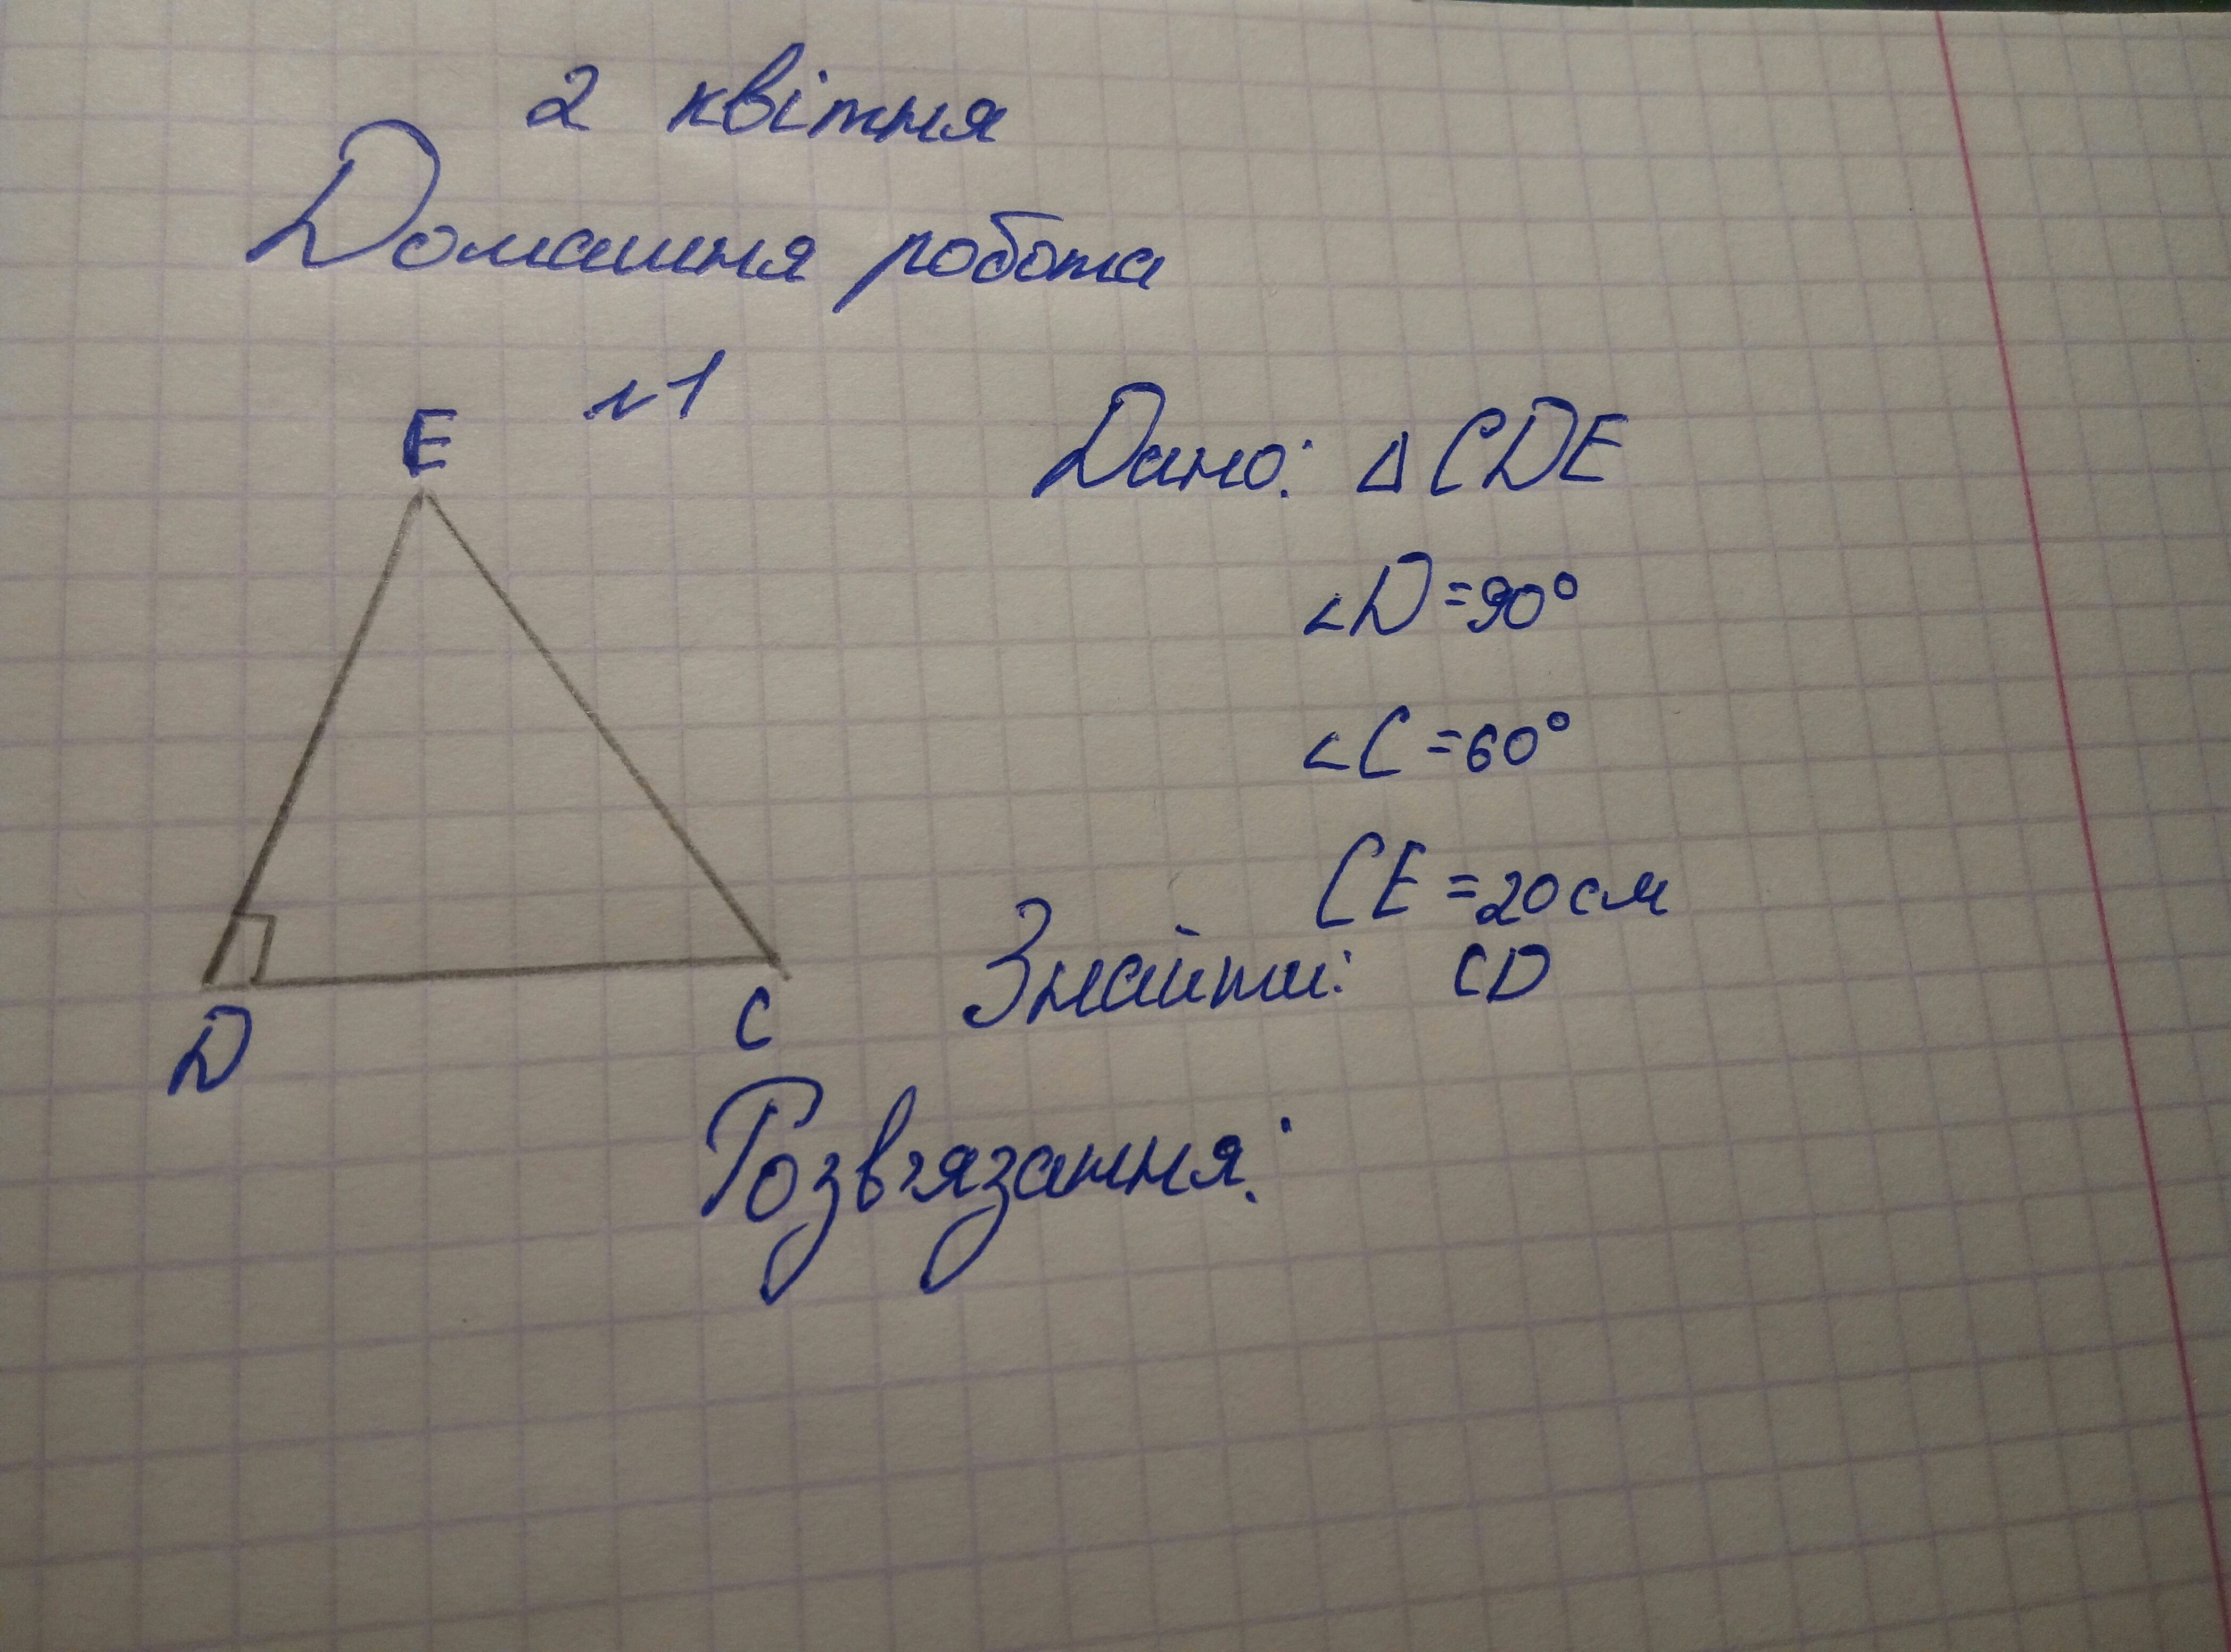 2 квітня
Домашня робота
№1
E
D
C
Дано: △CDE
∠D=90°
∠C=60°
CE=20см
Знайти: CD
Розв'язання: